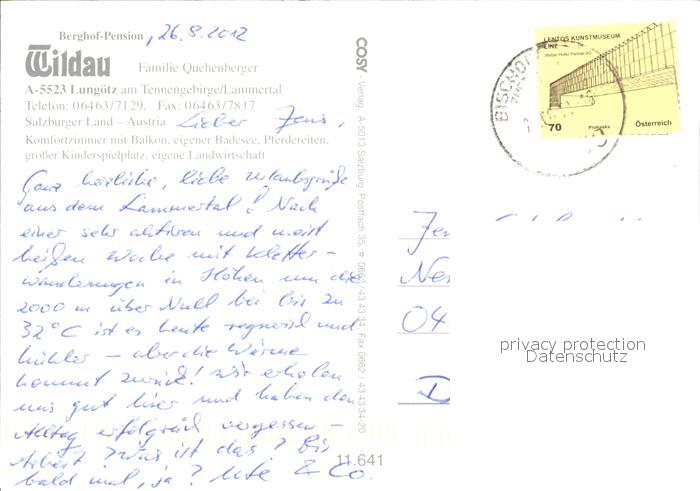 Berghof-Pension, 26.8.2012
Wildau Familie Quehenberger
A-5523 Lungötz am Tennengebirge/Lammertal
Telefon: 06463/7129, Fax: 06463/7817
Salzburger Land – Austria
Komfortzimmer mit Balkon, eigener Badesee, Pferdereiten,
großer Kinderspielplatz, eigene Landwirtschaft
Lieber Jens,
Ganz herzliche, liebe Urlaubsgrüße
aus dem Lammertal! Nach
einer sehr aktiven und meist
heißen Woche mit Kletter-
wanderungen in Höhen um die
2000 m über Null bei bis zu
32°C ist es heute regnerisch und
kühler – aber die Wärme
kommt zurück! Wir erholen
uns gut hier und haben den
Alltag erfolgreich vergessen –
Arbeit? Was ist das? Bis
bald mal, ja? Ute & Co.
COSY - Verlag, A-5013 Salzburg, Postfach 35, ☎ 0662/43 43 34, Fax 0662/43 43 34-20
11.641
LENTOS KUNSTMUSEUM
LINZ
Weber Hofer Partner AG
70 Österreich
BISCHOF
Jen
Nes
04
D
privacy protection
Datenschutz